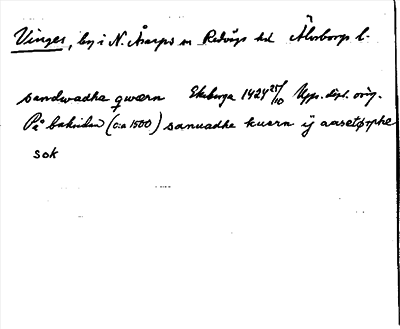 Vinges, by i N. Åsarps sn Redvägs hd Älvsborgs l.
sandwadha qwærn Ekeberga 1424 25/10 Upps. dipl. orig.
På baksidan (c:a 1500) sanuadhe kuærn ij aasetørphe
sok